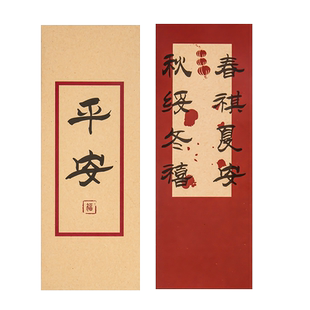 平安
福
春祺夏安
秋绥冬禧